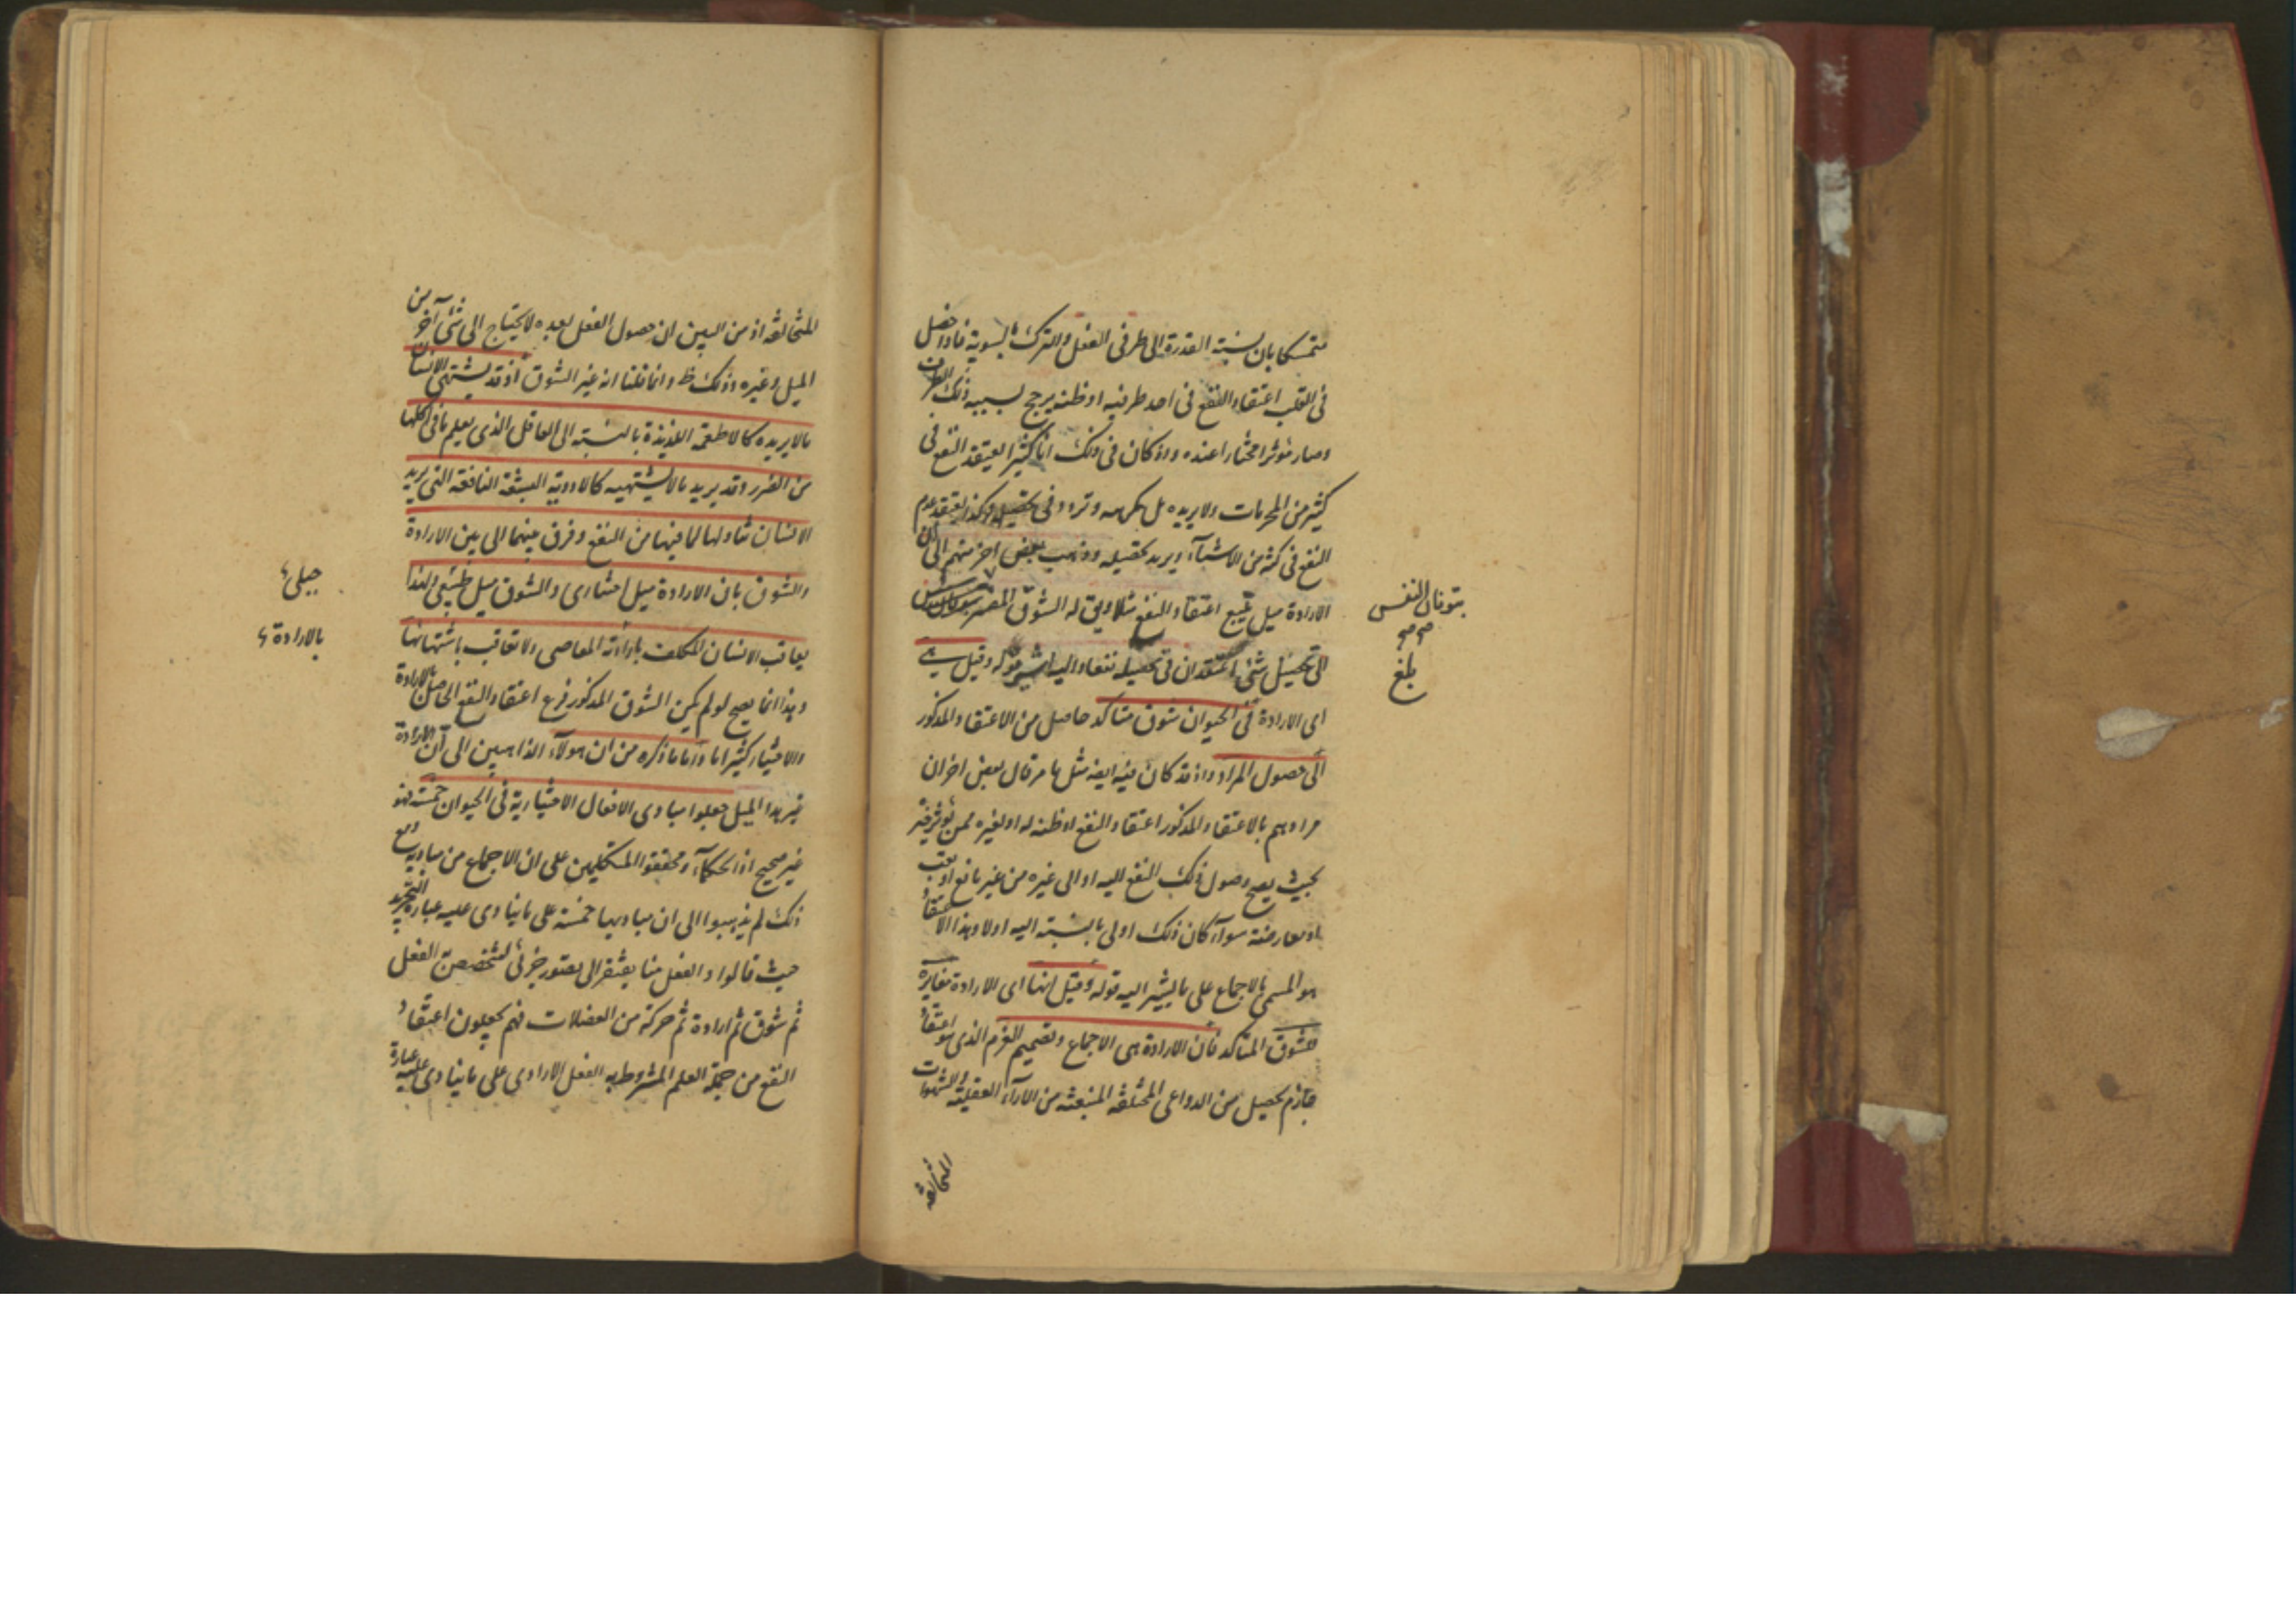 متمسكا بان نسبة القدرة الى طرفى الفعل والترك بالسوية فاذا حصل
فى القلب اعتقاد النفع فى احد طرفيه او ظنه يرجح بسببه ذلك الطرف
وصار مؤثرا مختارا عنده واذ كان فى ذلك انا كثيرا نعتقد النفع فى
كثير من المحرمات ولا يريده بل يكرهه وتردد فى تحصيله وكذا يعتقد عدم
النفع فى كثير من الاشياء ويريد تحصيله وذهب بعض اخر منهم الى ان
الارادة ميل يتبع اعتقاد النفع مثلا ويق له الشوق المفسر
الى تحصيل شئ اعتقد ان فى تحصيله نفعا واليه اشير بقوله وقيل هى
اى الارادة فى الحيوان شوق متاكد حاصل من الاعتقاد المذكور
الى حصول المراد واذ قد كان فيه ايضه مثل ما مر قال بعض اخر ان
مرادهم بالاعتقاد المذكور اعتقاد النفع او ظنه له او لغيره ممن يؤثر خيره
بحيث يصح وصول ذلك النفع اليه او الى غيره من غير مانع او تعب
او معارضة سواء كان ذلك اولى بالنسبة اليه اولا وهذا الاعتقاد
هو المسمى بالاجماع على ما يشير اليه قوله وقيل انها اى الارادة مغايرة
للشوق المتاكد فان الارادة هى الاجماع وتصميم العزم الذى هو اعتقاد
جازم يحصل من الدواعى المختلفة المنبعثة من الآراء العقلية والشهوات
المتخالفة
بتوقان النفس
صح صح
بلغ
المتخالفة اذ من البين ان حصول الفعل بعده لا يحتاج الى شئ آخر من
الميل وغيره وذلك ظ وانما قلنا انه غير الشوق اذ قد يشتهى الانسان
ما لا يريده كالاطعمة اللذيذة بالنسبة الى العاقل الذى يعلم ما فى اكلها
من الضرر وقد يريد ما لا يشتهيه كالادوية البشعة النافعة التى يريد
الانسان تناولها لما فيها من النفع وفرق بينهما اى بين الارادة
والشوق بان الارادة ميل اختيارى والشوق ميل طبيعى ولهذا
يعاقب الانسان المكلف بارادته المعاصى ولا يعاقب باشتهائها
وهذا انما يصح لو لم يكن الشوق المذكور فرع اعتقاد النفع الحاصل بالارادة
والاختيار كثيرا ما واما ما ذكره من ان هولاء الذاهبين الى ان الارادة
غير هذا الميل جعلوا مبادى الافعال الاختيارية فى الحيوان خمسة فهو
غير صحيح اذ الحكماء ومحققوا المتكلمين على ان الاجماع من مباديه ومع
ذلك لم يذهبوا الى ان مباديها خمسة على ما ينادى عليه عبارة التجريد
حيث قالوا والفعل منا يفتقر الى تصور جزئى لتخصص الفعل
ثم شوق ثم ارادة ثم حركة من العضلات فهم يجعلون اعتقاد
النفع من جملة العلم المشروط به الفعل الارادى على ما ينادى عليه عبارة
جبلى
بالارادة